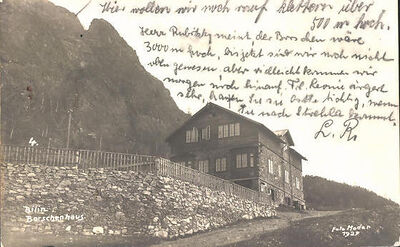 Hier wollen wir noch rauf klettern über
500 m hoch.
Herr Rubitzky meint der Borschen wäre
3000 m hoch, bis jetzt sind wir noch nicht
oben gewesen aber vielleicht kommen wir
morgen noch hinauf. Frl. Leonie ärgert
sehr, hauen Sie sie tichtig, wenn
Sie nach Strehla kommt.
L. R.
4.
Bilin
Borschenhaus
Foto Mader
1927